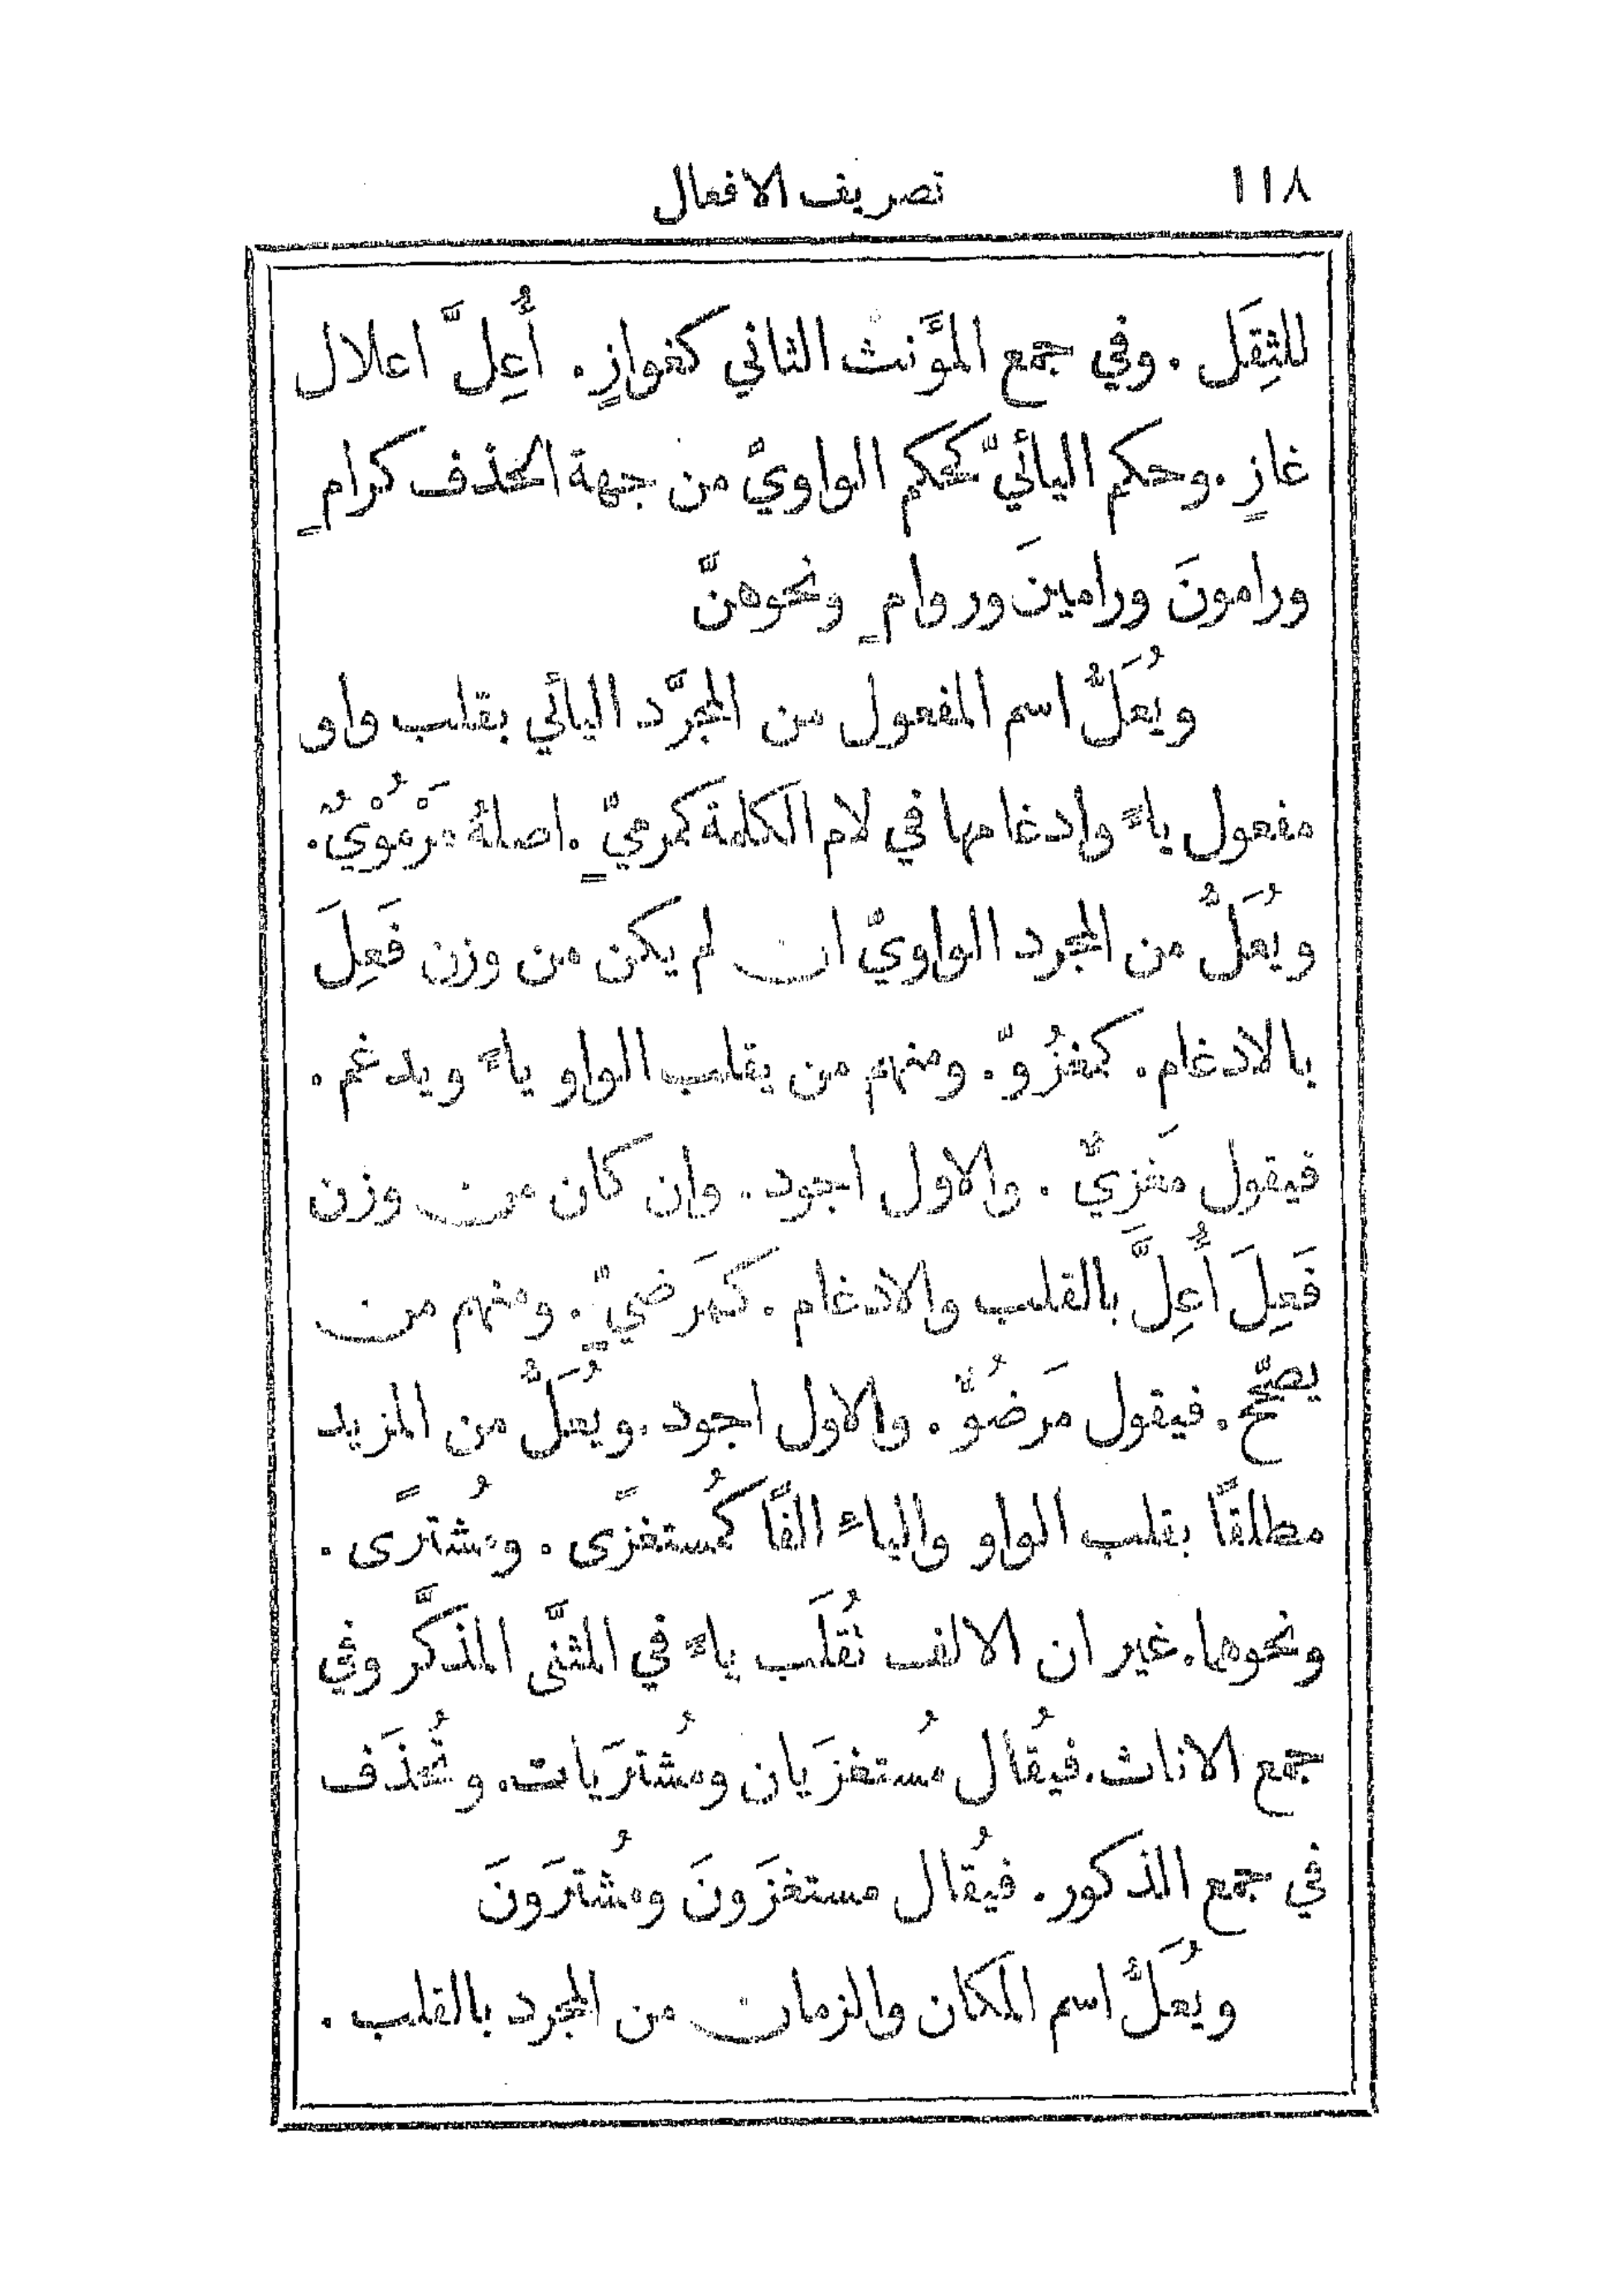 ١١٨ تصريف الافعال
للثِقَل . وفي جمع المؤَنث الثاني كغوازٍ . أُعِلَّ اعلال
غازٍ . وحكم اليائيّ كحكم الواويّ من جهة الحذف كرامٍ
ورامونَ ورامينَ وروامٍ ونحوهنَّ
ويُعَلُّ اسم المفعول من المجرَّد اليائي بقلب واو
مفعول ياءً وادغامها في لام الكلمة كمرميٍّ . اصلهُ مَرْمُوْيٌ .
ويُعَلُّ من المجرد الواويّ ان لم يكن من وزن فَعِلَ
بالادغام . كمغزُوّ . ومنهم من يقلب الواو ياءً ويدغم .
فيقول مَغزيٌّ . والاول اجود . وان كان من وزن
فَعِلَ أُعِلَّ بالقلب والادغام . كمَرضيٍّ . ومنهم من
يصحّح . فيقول مَرضُوٌّ . والاول اجود . ويُعَلُّ من المزيد
مطلقًا بقلب الواو والياء الفًا كمُستغزًى . ومُشترًى .
ونحوهما . غير ان الالف تُقلَب ياءً في المثنَّى المذكَّر وفي
جمع الاناث . فيُقال مُستغزَيان ومُشترَيات . وتُحذَف
في جمع الذكور . فيُقال مستغزَونَ ومُشترَونَ
ويُعَلُّ اسم المكان والزمان من المجرد بالقلب .